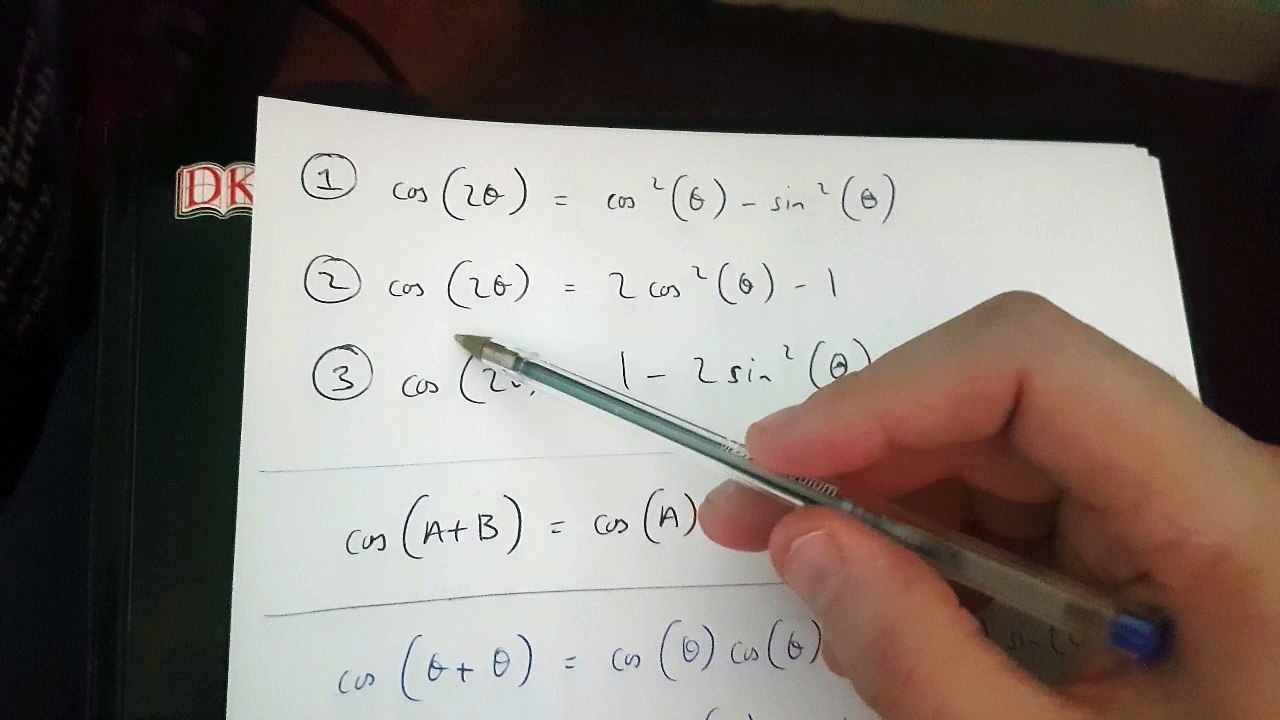 DK
① cos(2θ) = cos²(θ) - sin²(θ)
② cos(2θ) = 2cos²(θ) - 1
③ cos(2 1 - 2sin²(θ)
cos(A+B) = cos(A)
cos(θ+θ) = cos(θ)cos(θ) sin(